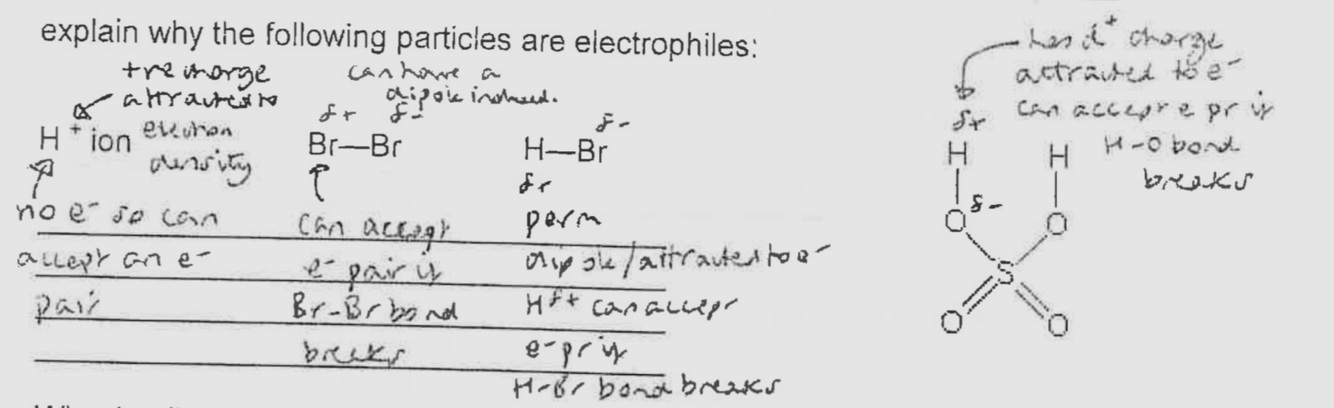 explain why the following particles are electrophiles:
+ve charge
attracted to
electron
density
H + ion
no e- so can
accept an e-
pair
can have a
dipole induced.
δ+ δ-
Br—Br
can accept
e- pair if
Br-Br bond
breaks
δ-
H—Br
δ+
perm
dipole/attracted to e-
Hδ+ can accept
e- pr if
H-Br bond breaks
has δ+ charge
attracted to e-
can accept e pr if
H-O bond
breaks
δ+
H H
O δ- O
S
O O